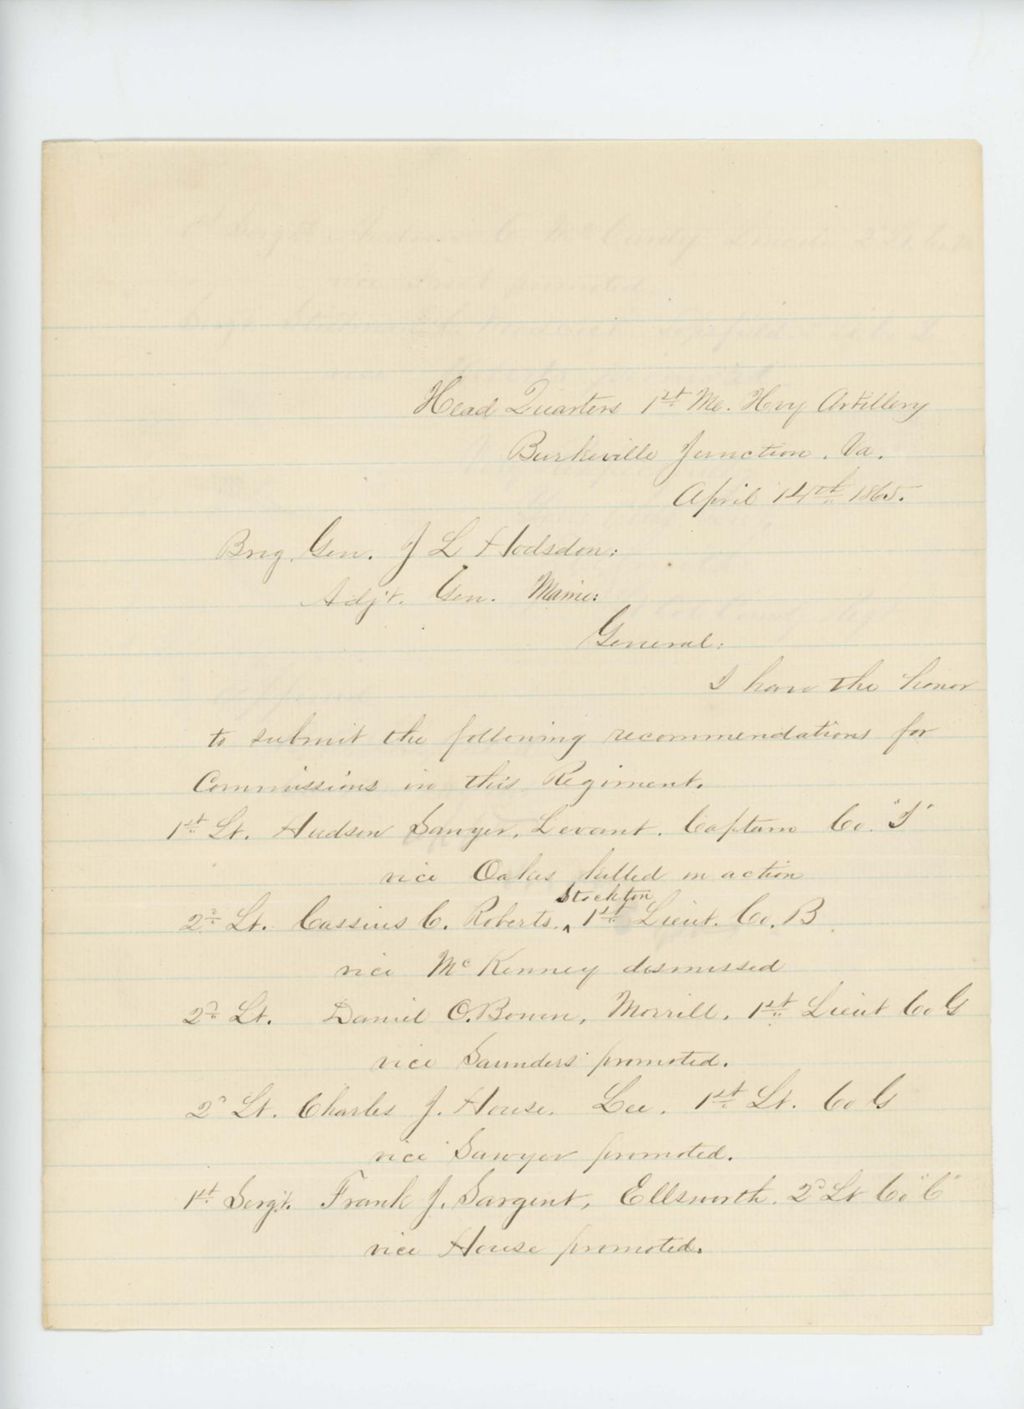 Head Quarters 1st Me. Hvy Artillery
Burkeville Junction. Va.
April 14th 1865.
Brig. Gen. J L Hodsdon:
Adjt. Gen. Maine:
General:
I have the honor
to submit the following recommendations for
Commissions in this Regiment.
1st Lt. Hudson Sawyer, Levant. Captain Co. "I"
vice Oakes killed in action
Stockton
2d Lt. Cassius C. Roberts. ^ 1st Lieut. Co. B
vice McKenney dismissed
2d Lt. Daniel O. Bowen, Morrill. 1st Lieut Co G
vice Saunders promoted.
2d Lt. Charles J. House. Lee. 1st Lt. Co G
vice Sawyer promoted.
1st Sergt. Frank J. Sargent, Ellsworth. 2d Lt Co "C"
vice House promoted.